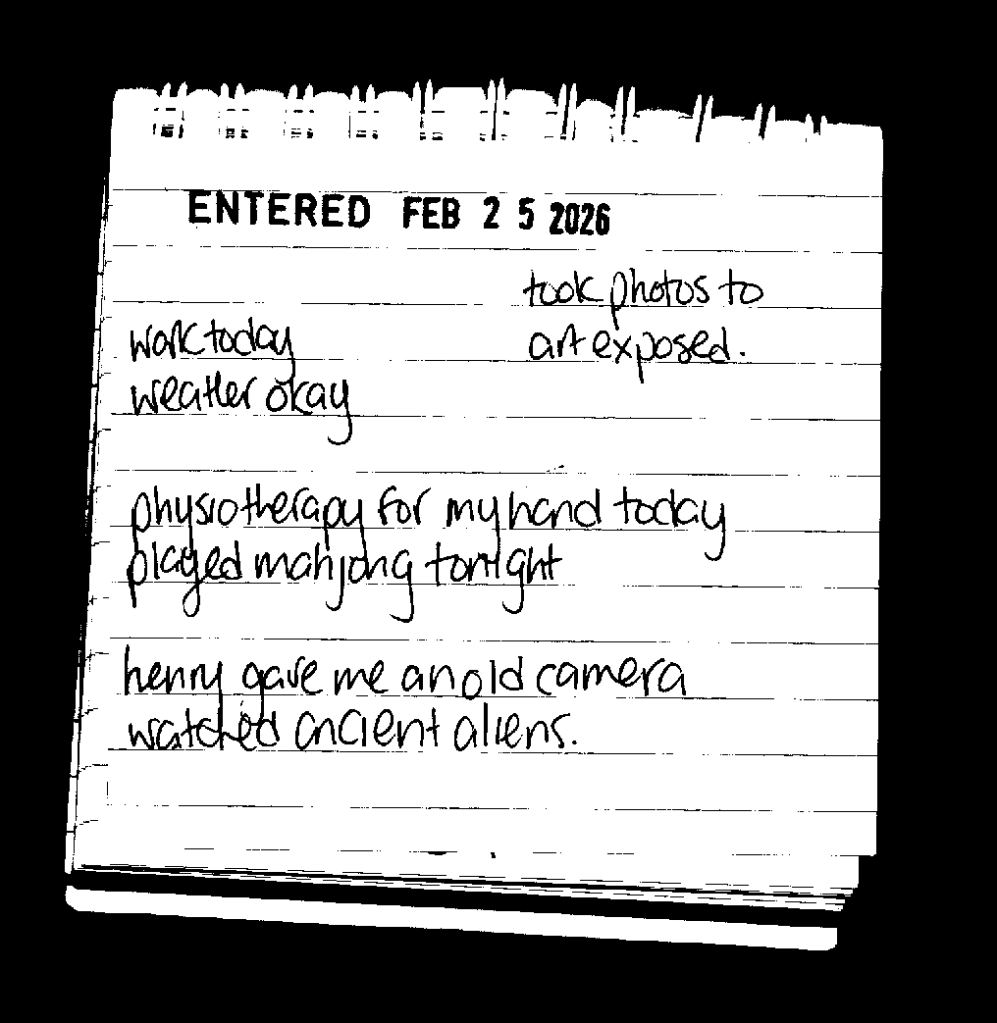 ENTERED FEB 25 2026
took photos to
art exposed.
work today
weather okay
physiotherapy for my hand today
played mahjong tonight
henry gave me an old camera
watched ancient aliens.